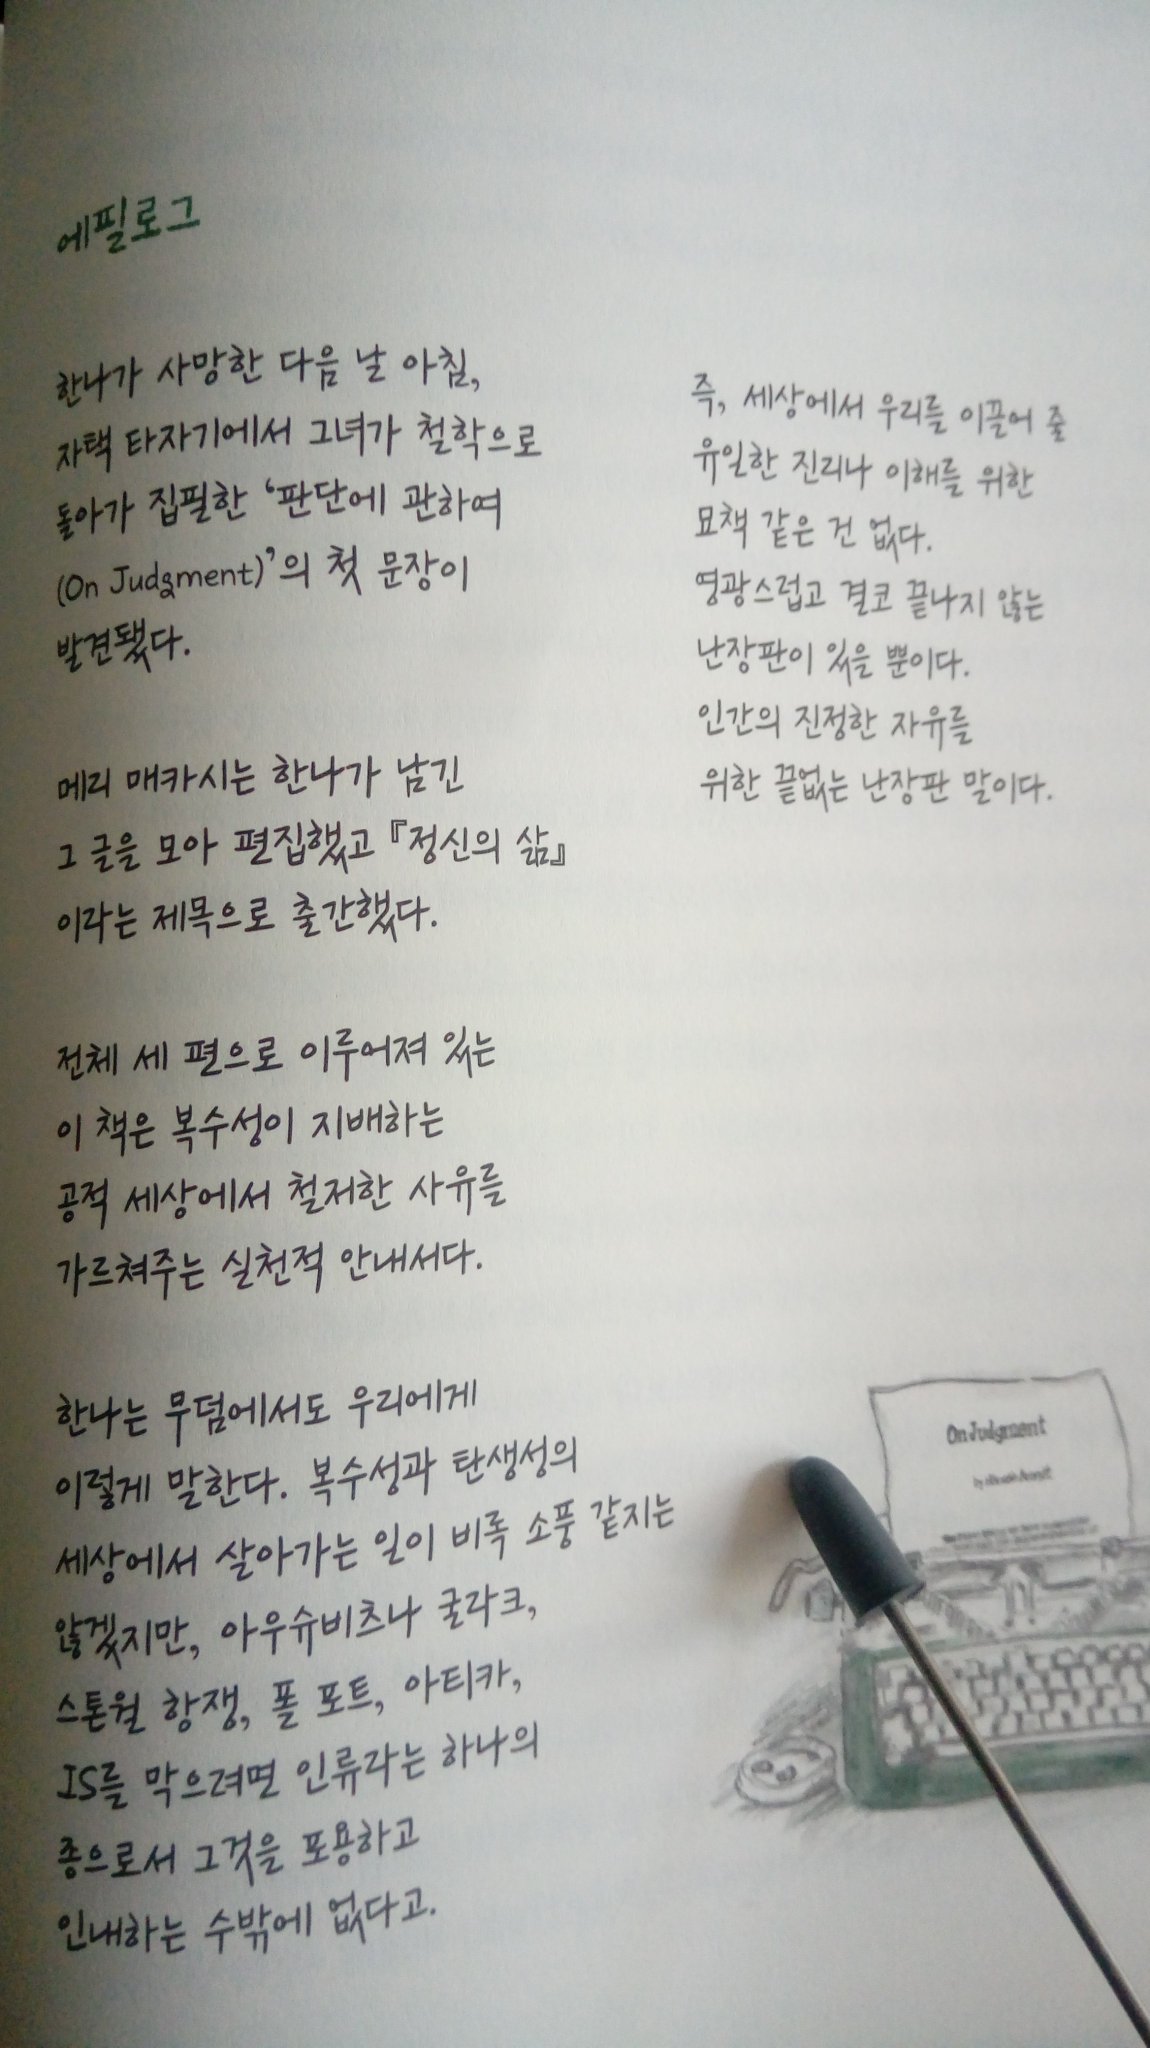 에필로그
한나가 사망한 다음 날 아침,
자택 타자기에서 그녀가 철학으로
돌아가 집필한 ‘판단에 관하여
(On Judgment)’의 첫 문장이
발견됐다.
메리 매카시는 한나가 남긴
그 글을 모아 편집했고 『정신의 삶』
이라는 제목으로 출간했다.
전체 세 편으로 이루어져 있는
이 책은 복수성이 지배하는
공적 세상에서 철저한 사유를
가르쳐주는 실천적 안내서다.
한나는 무덤에서도 우리에게
이렇게 말한다. 복수성과 탄생성의
세상에서 살아가는 일이 비록 소풍 같지는
않겠지만, 아우슈비츠나 굴라크,
스톤월 항쟁, 폴 포트, 아티카,
IS를 막으려면 인류라는 하나의
종으로서 그것을 포용하고
인내하는 수밖에 없다고.
즉, 세상에서 우리를 이끌어 줄
유일한 진리나 이해를 위한
묘책 같은 건 없다.
영광스럽고 결코 끝나지 않는
난장판이 있을 뿐이다.
인간의 진정한 자유를
위한 끝없는 난장판 말이다.
On Judgment
by Hannah Arendt